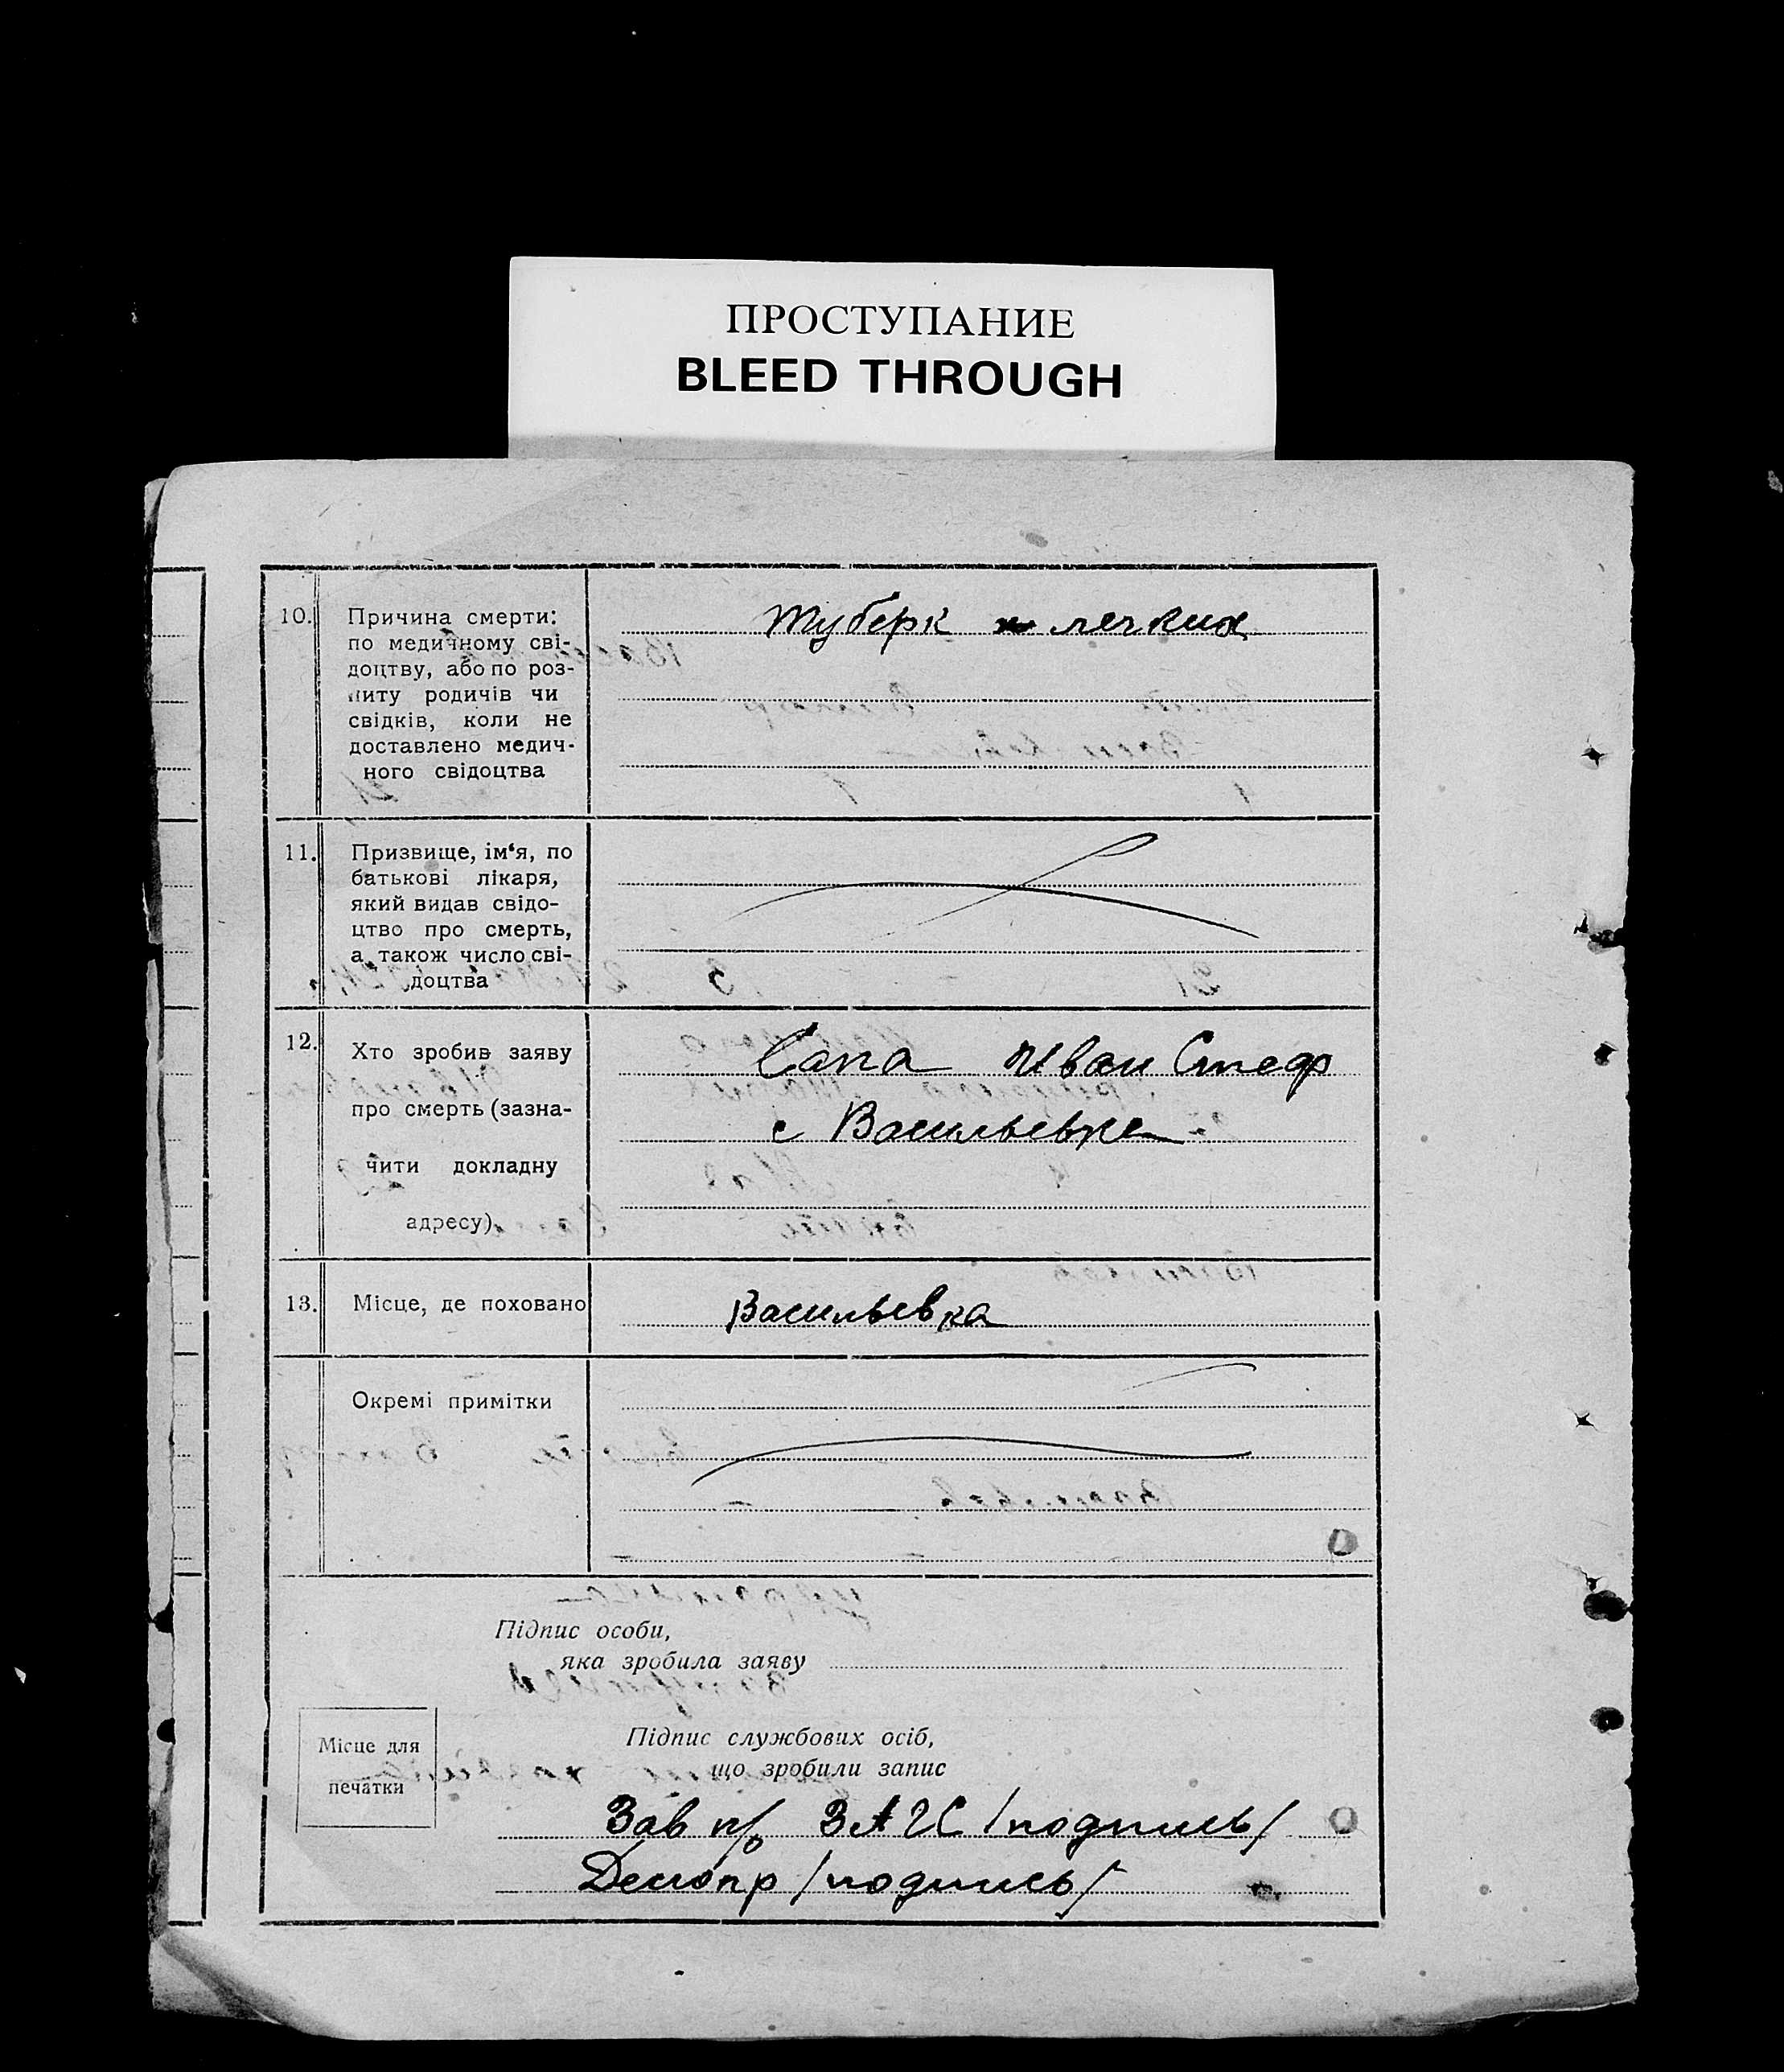 ПРОСТУПАНИЕ
BLEED THROUGH
10. Причина смерти:
по медичному сві-
доцтву, або по роз-
питу родичів чи
свідків, коли не
доставлено медич-
ного свідоцтва
туберк легких
11. Призвище, ім‘я, по
батькові лікаря,
який видав свідо-
цтво про смерть,
а також число сві-
доцтва
12. Хто зробив заяву
про смерть (зазна-
чити докладну
адресу)
Сапа Иван Стеф
с Васильевке
13. Місце, де поховано
Васильевка
Окремі примітки
Підпис особи,
яка зробила заяву
Місце для
печатки
Підпис службових осіб,
що зробили запис
Зав п/о ЗАГС /подпись/
/подпись/